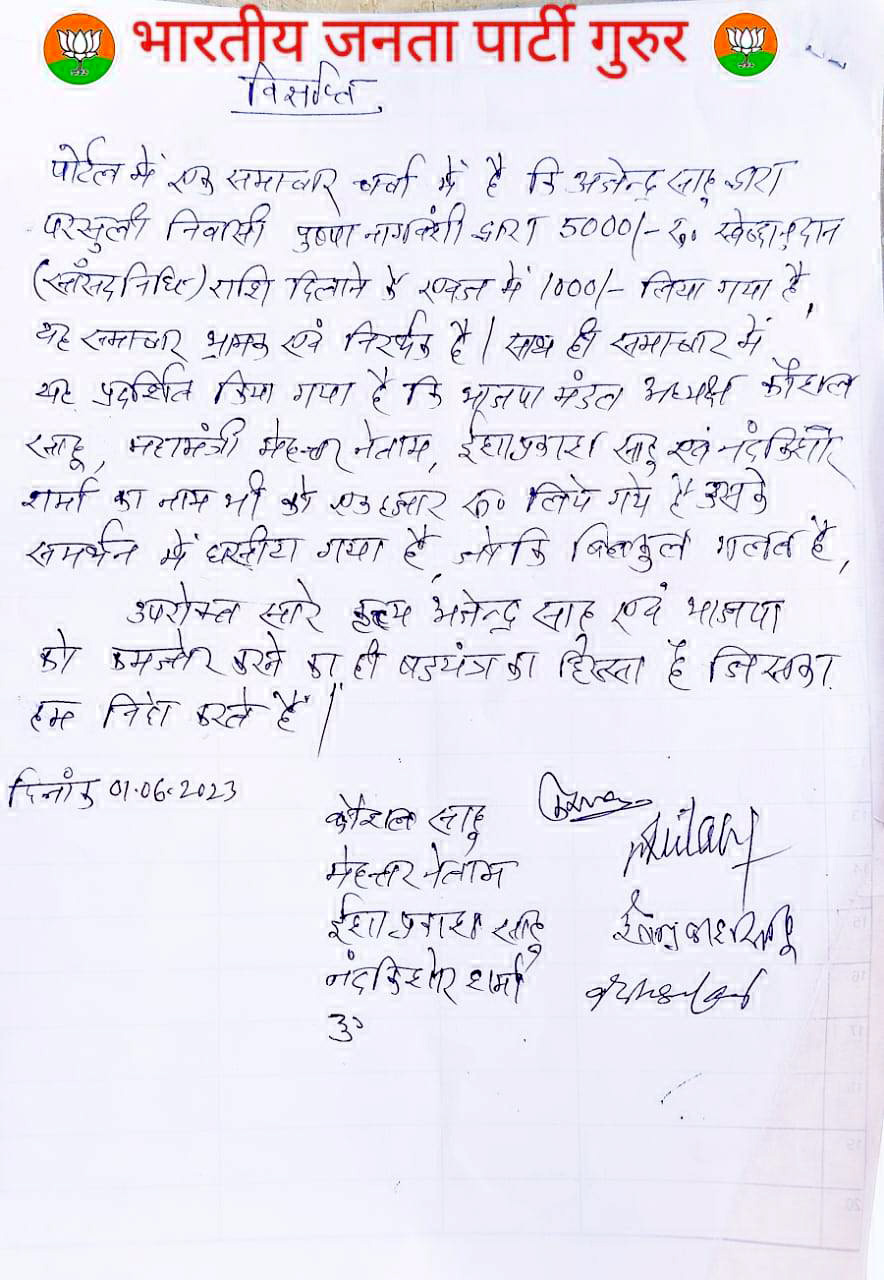 भारतीय जनता पार्टी गुरुर
विज्ञप्ति
पोर्टल में एक समाचार चर्चा में है कि अजेन्द्र साहू द्वारा
परसुली निवासी पुष्पा नागवंशी द्वारा 5000/- रु० स्वेच्छानुदान
(सांसद निधि) राशि दिलाने के एवज में 1000/- लिया गया है,
यह समाचार भ्रामक एवं निरर्थक है। साथ ही समाचार में
यह प्रदर्शित किया गया है कि भाजपा मंडल अध्यक्ष कौशल
साहू, महामंत्री मेहत्तर नेताम, ईशाप्रकाश साहू एवं नंदकिशोर
शर्मा का नाम भी को एक हजार रु० लिये गये है उसके
समर्थन में घसीटा गया है, जो कि बिलकुल गलत है,
उपरोक्त सारे अजेन्द्र साहू एवं भाजपा
को कमजोर करने का ही षडयंत्र का हिस्सा है जिसका
हम निंदा करते हैं।
दिनांक 01.06.2023
कौशल साहू
मेहत्तर नेताम
ईशाप्रकाश साहू
नंदकिशोर शर्मा